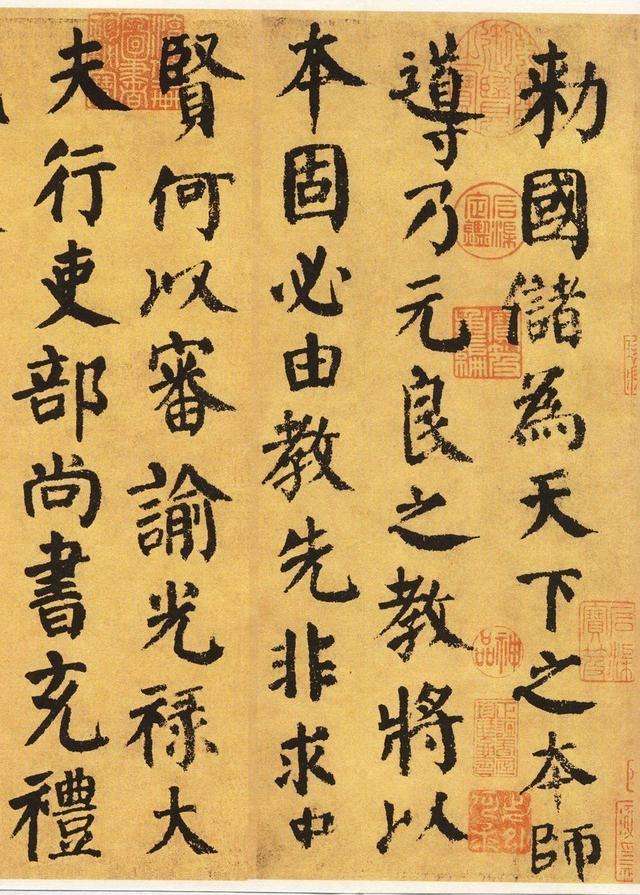 勑國儲為天下之本師
導乃元良之教將以
本固必由教先非求中
賢何以審諭光禄大
夫行吏部尚書充禮
神品